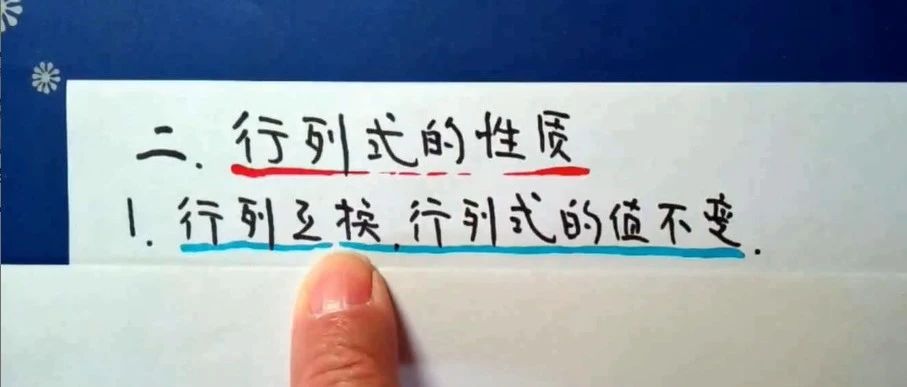 二.行列式的性质
1.行列互换,行列式的值不变.